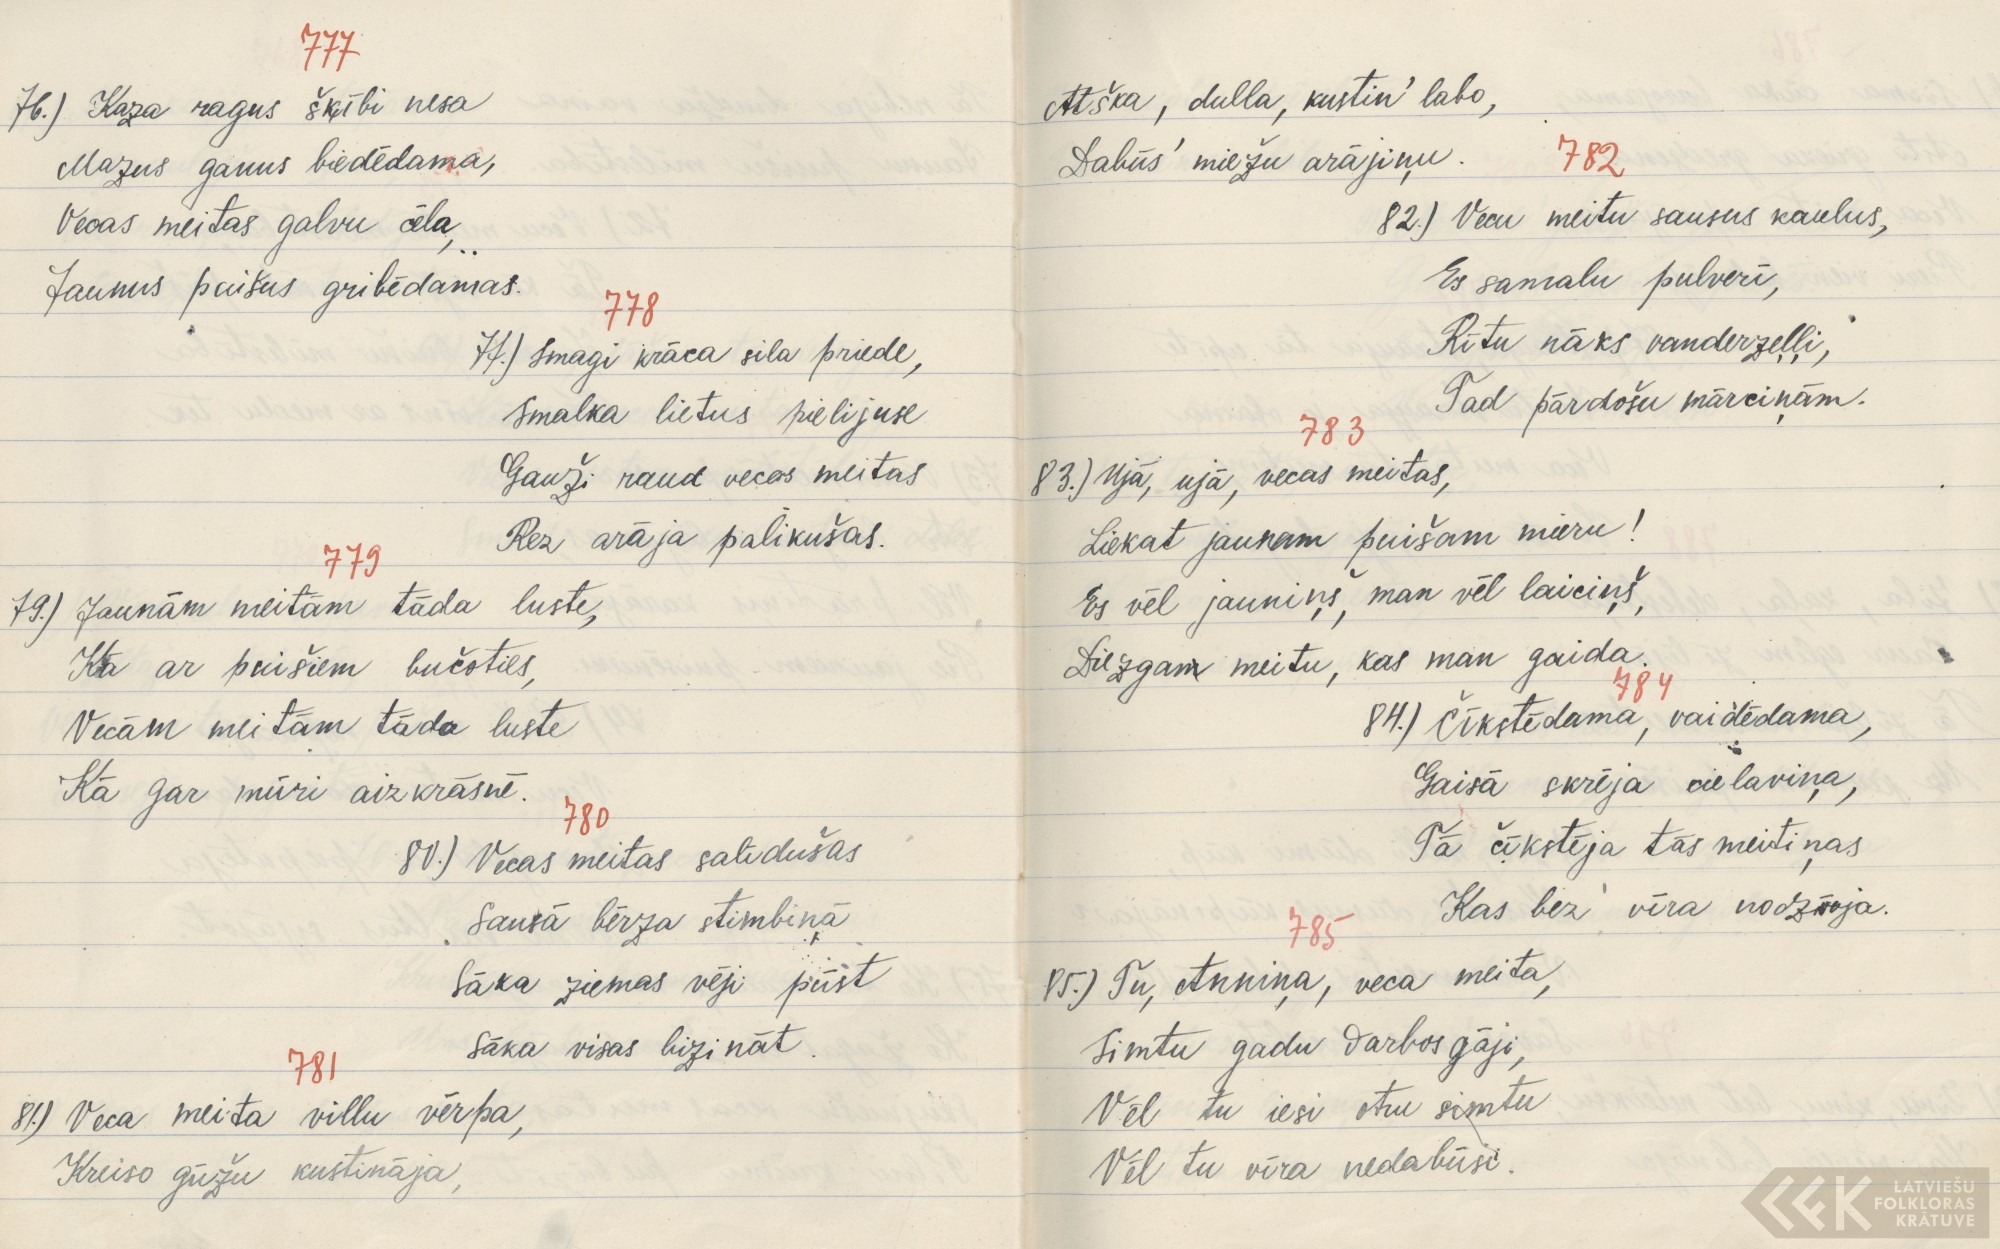 777
76.) Kaza ragus šķībi nesa
Mazus ganus biedēdama,
Vecas meitas galvu cēla,
Jaunus puišus gribēdamas.
778
77.) Smagi krāca sila priede,
Smalka lietus pielijuse
Gauži raud vecas meitas
Bez arāja palikušas.
779
79.) Jaunām meitām tāda luste,
Kā ar puišiem bučoties,
Vecām meitām tāda luste
Kā gar mūri aizkrāsnē.
780
80.) Vecas meitas salīdušas
Sausā bērza stimbiņā
Sāka ziemas vēji pūst
Sāka visas bizināt.
781
81.) Veca meita villu vērpa,
Kreiso gūžu kustināja,
Atška, dulla, kustin' labo,
Dabūs' miežu arājiņu.
782
82.) Vecu meitu sausus kaulus,
Es samalu pulverī,
Rītu nāks vanderzeļļi,
Tad pārdošu mārciņām.
783
83.) Ujā, ujā, vecas meitas,
Liekat jaunam puišam mieru!
Es vēl jauniņš, man vēl laiciņš,
Diezgan meitu, kas man gaida.
784
84.) Čīkstēdama, vaidēdama,
Gaisā skrēja cielaviņa,
Tā čīkstēja tās meitiņas
Kas bez vīra nodzīvoja.
785
85.) Tu, Anniņa, veca meita,
Simtu gadu darbos gāji,
Vēl tu iesi otru simtu
Vēl tu vīra nedabūsi.
LATVIEŠU
FOLKLORAS
KRĀTUVE